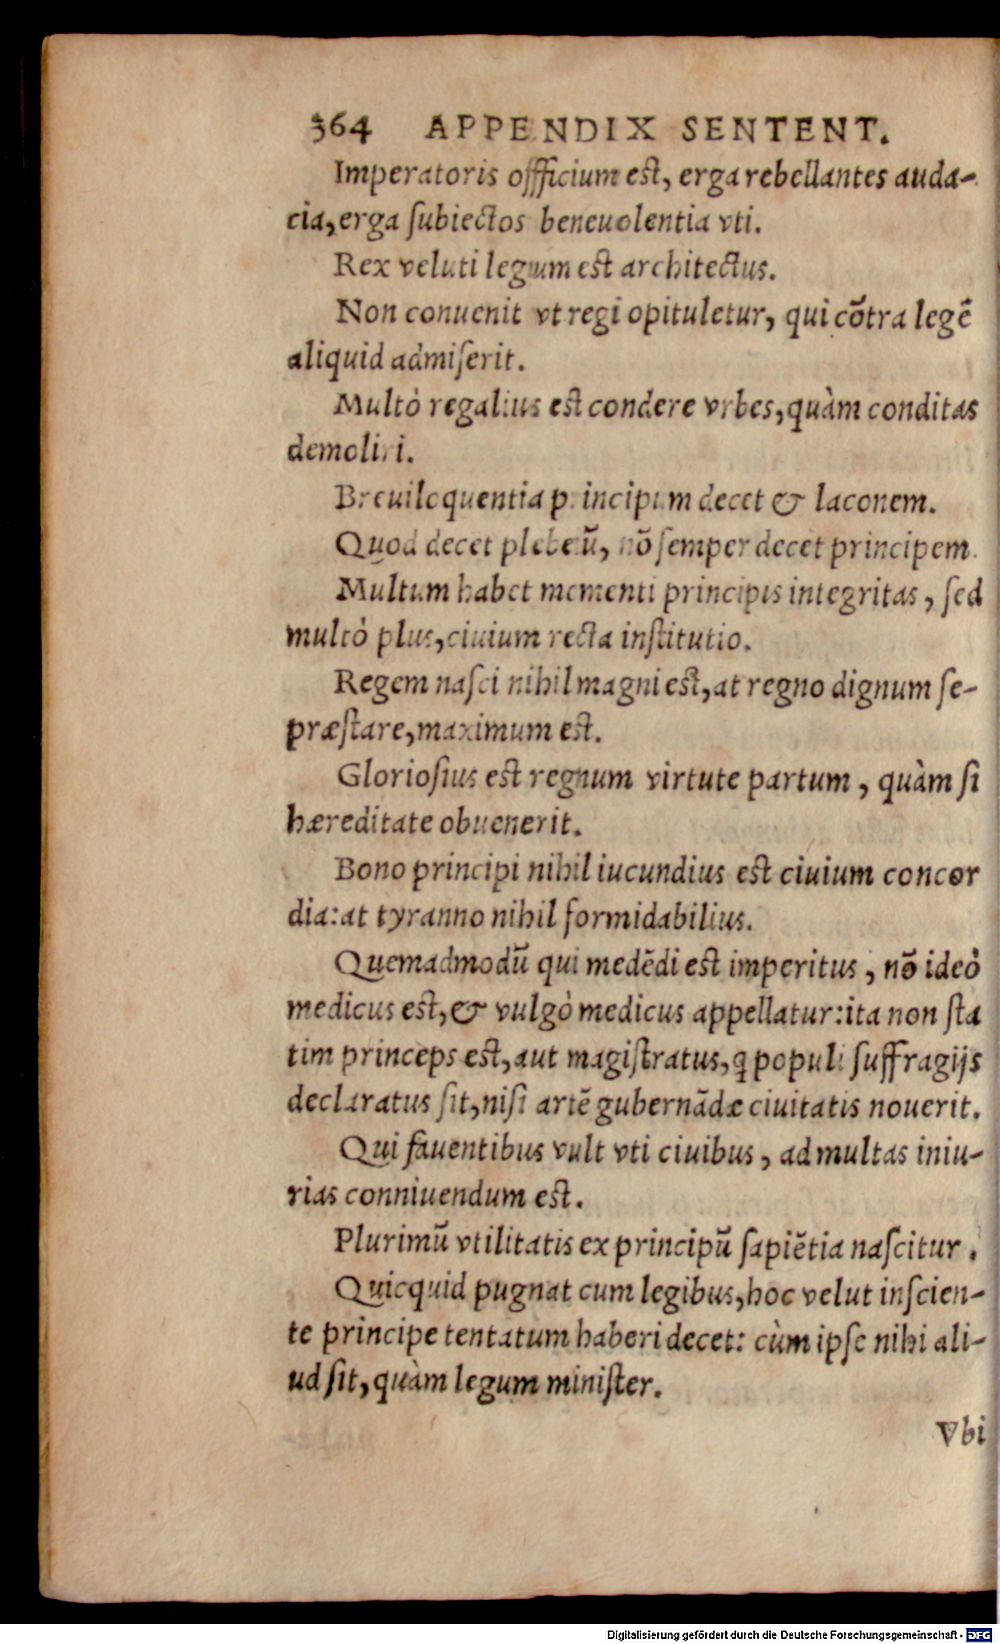 364 APPENDIX SENTENT.
Imperatoris offficium est, erga rebellantes auda-
cia, erga ſubiectos beneuolentia vti.
Rex veluti legum est architectus.
Non conuenit vt regi opituletur, qui cõtra legẽ
aliquid admiſerit.
Multò regalius est condere vrbes, quàm conditas
demoliri.
Breuiloquentia principem decet & laconem.
Quod decet plebeiũ, nõ ſemper decet principem.
Multum habet momenti principis integritas, ſed
multò plus, ciuium recta inſtitutio.
Regem naſci nihil magni est, at regno dignum ſe-
præſtare, maximum est.
Glorioſius est regnum virtute partum, quàm ſi
hæreditate obuenerit.
Bono principi nihil iucundius est ciuium concor
dia: at tyranno nihil formidabilius.
Quemadmodũ qui medẽdi est imperitus, nõ ideò
medicus est, & vulgò medicus appellatur: ita non ſta
tim princeps est, aut magiſtratus, q populi ſuffragijs
declaratus ſit, niſi artẽ gubernãdæ ciuitatis nouerit.
Qui fauentibus vult vti ciuibus, ad multas iniu-
rias conniuendum est.
Plurimũ vtilitatis ex principũ ſapiẽtia naſcitur.
Quicquid pugnat cum legibus, hoc velut inſcien-
te principe tentatum haberi decet: cùm ipſe nihi ali-
ud ſit, quàm legum miniſter.
Vbi
Digitalisierung gefördert durch die Deutsche Forschungsgemeinschaft - DFG